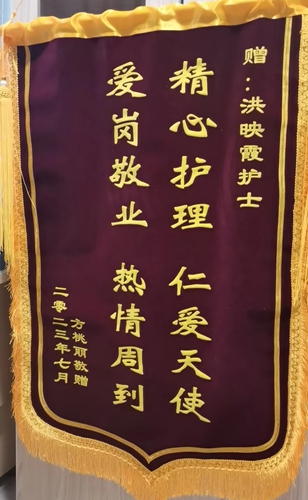 赠：洪映霞护士
精心护理 仁爱天使
爱岗敬业 热情周到
方桃丽敬赠
二零二三年七月